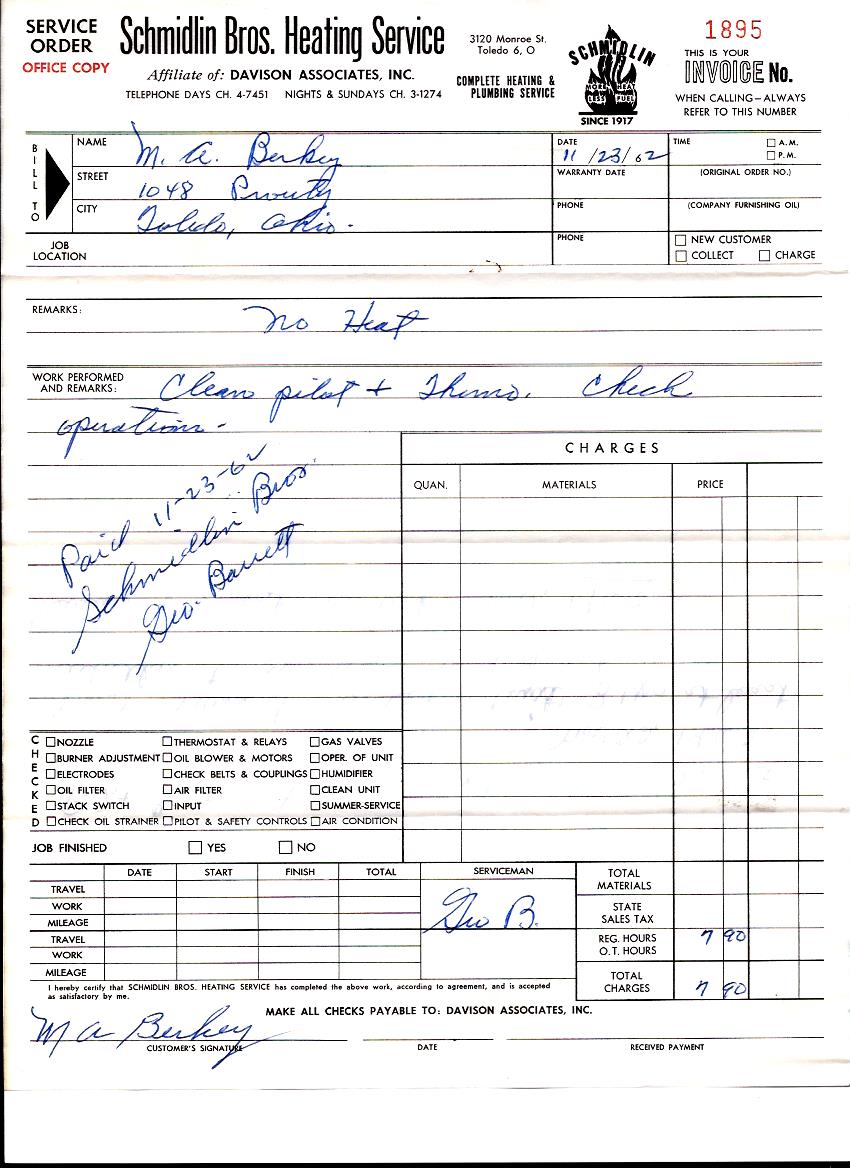 SERVICE
ORDER
OFFICE COPY
Schmidlin Bros. Heating Service
Affiliate of: DAVISON ASSOCIATES, INC.
TELEPHONE DAYS CH. 4-7451 NIGHTS & SUNDAYS CH. 3-1274
3120 Monroe St.
Toledo 6, O
COMPLETE HEATING &
PLUMBING SERVICE
SCHMIDLIN
MORE HEAT
LESS FUEL
SINCE 1917
1895
THIS IS YOUR
INVOICE No.
WHEN CALLING—ALWAYS
REFER TO THIS NUMBER
BILL TO
NAME M. A. Berkey
STREET 1048 Prouty
CITY Toledo, Ohio.
JOB
LOCATION
DATE 11/23/62
WARRANTY DATE
PHONE
PHONE
TIME A.M.
P.M.
(ORIGINAL ORDER NO.)
(COMPANY FURNISHING OIL)
NEW CUSTOMER
COLLECT CHARGE
REMARKS: No Heat
WORK PERFORMED
AND REMARKS: Clean pilot + Thermo. Check
operation-
Paid 11-23-62
Schmidlin Bros.
Geo. Barrett
CHARGES
QUAN. MATERIALS PRICE
CHECKED
NOZZLE THERMOSTAT & RELAYS GAS VALVES
BURNER ADJUSTMENT OIL BLOWER & MOTORS OPER. OF UNIT
ELECTRODES CHECK BELTS & COUPLINGS HUMIDIFIER
OIL FILTER AIR FILTER CLEAN UNIT
STACK SWITCH INPUT SUMMER-SERVICE
CHECK OIL STRAINER PILOT & SAFETY CONTROLS AIR CONDITION
JOB FINISHED YES NO
DATE START FINISH TOTAL SERVICEMAN
TRAVEL
WORK
MILEAGE
TRAVEL
WORK
MILEAGE
Geo B.
TOTAL
MATERIALS
STATE
SALES TAX
REG. HOURS 7 90
O.T. HOURS
TOTAL
CHARGES 7 90
I hereby certify that SCHMIDLIN BROS. HEATING SERVICE has completed the above work, according to agreement, and is accepted
as satisfactory by me.
MAKE ALL CHECKS PAYABLE TO: DAVISON ASSOCIATES, INC.
M A Berkey
CUSTOMER'S SIGNATURE DATE RECEIVED PAYMENT